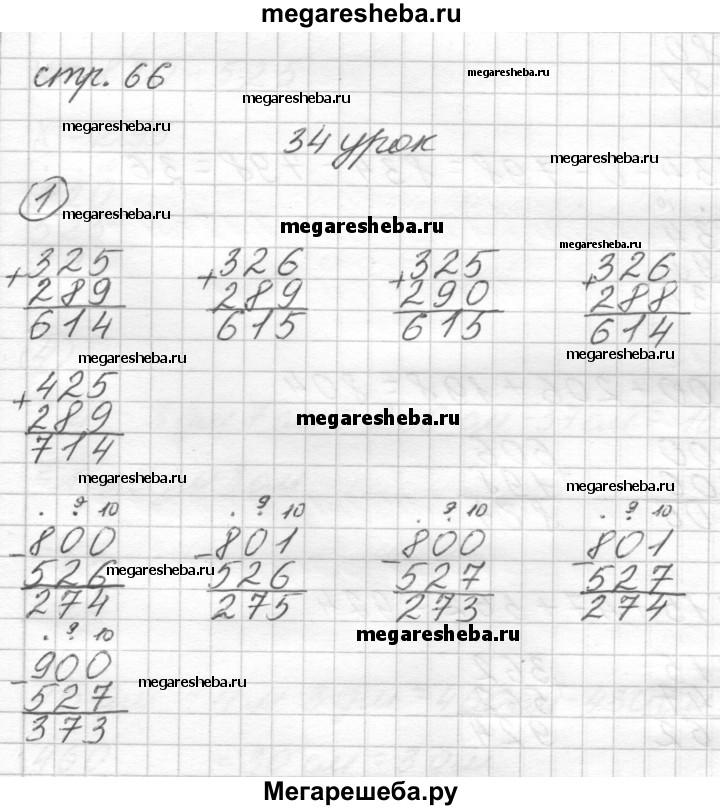 megaresheba.ru
стр. 66
megaresheba.ru
megaresheba.ru
megaresheba.ru
34 урок
megaresheba.ru
1
megaresheba.ru
megaresheba.ru
megaresheba.ru
+325 +326 +325 +326
289 289 290 288
614 615 615 614
megaresheba.ru
megaresheba.ru
+425
289
714
megaresheba.ru
megaresheba.ru
megaresheba.ru
. 9 10 . 9 10 . 9 10 . 9 10
-800 -801 -800 -801
526 526 527 527
megaresheba.ru
274 275 273 274
megaresheba.ru
. 9 10
-900
527
373
megaresheba.ru
Мегарешеба.ру